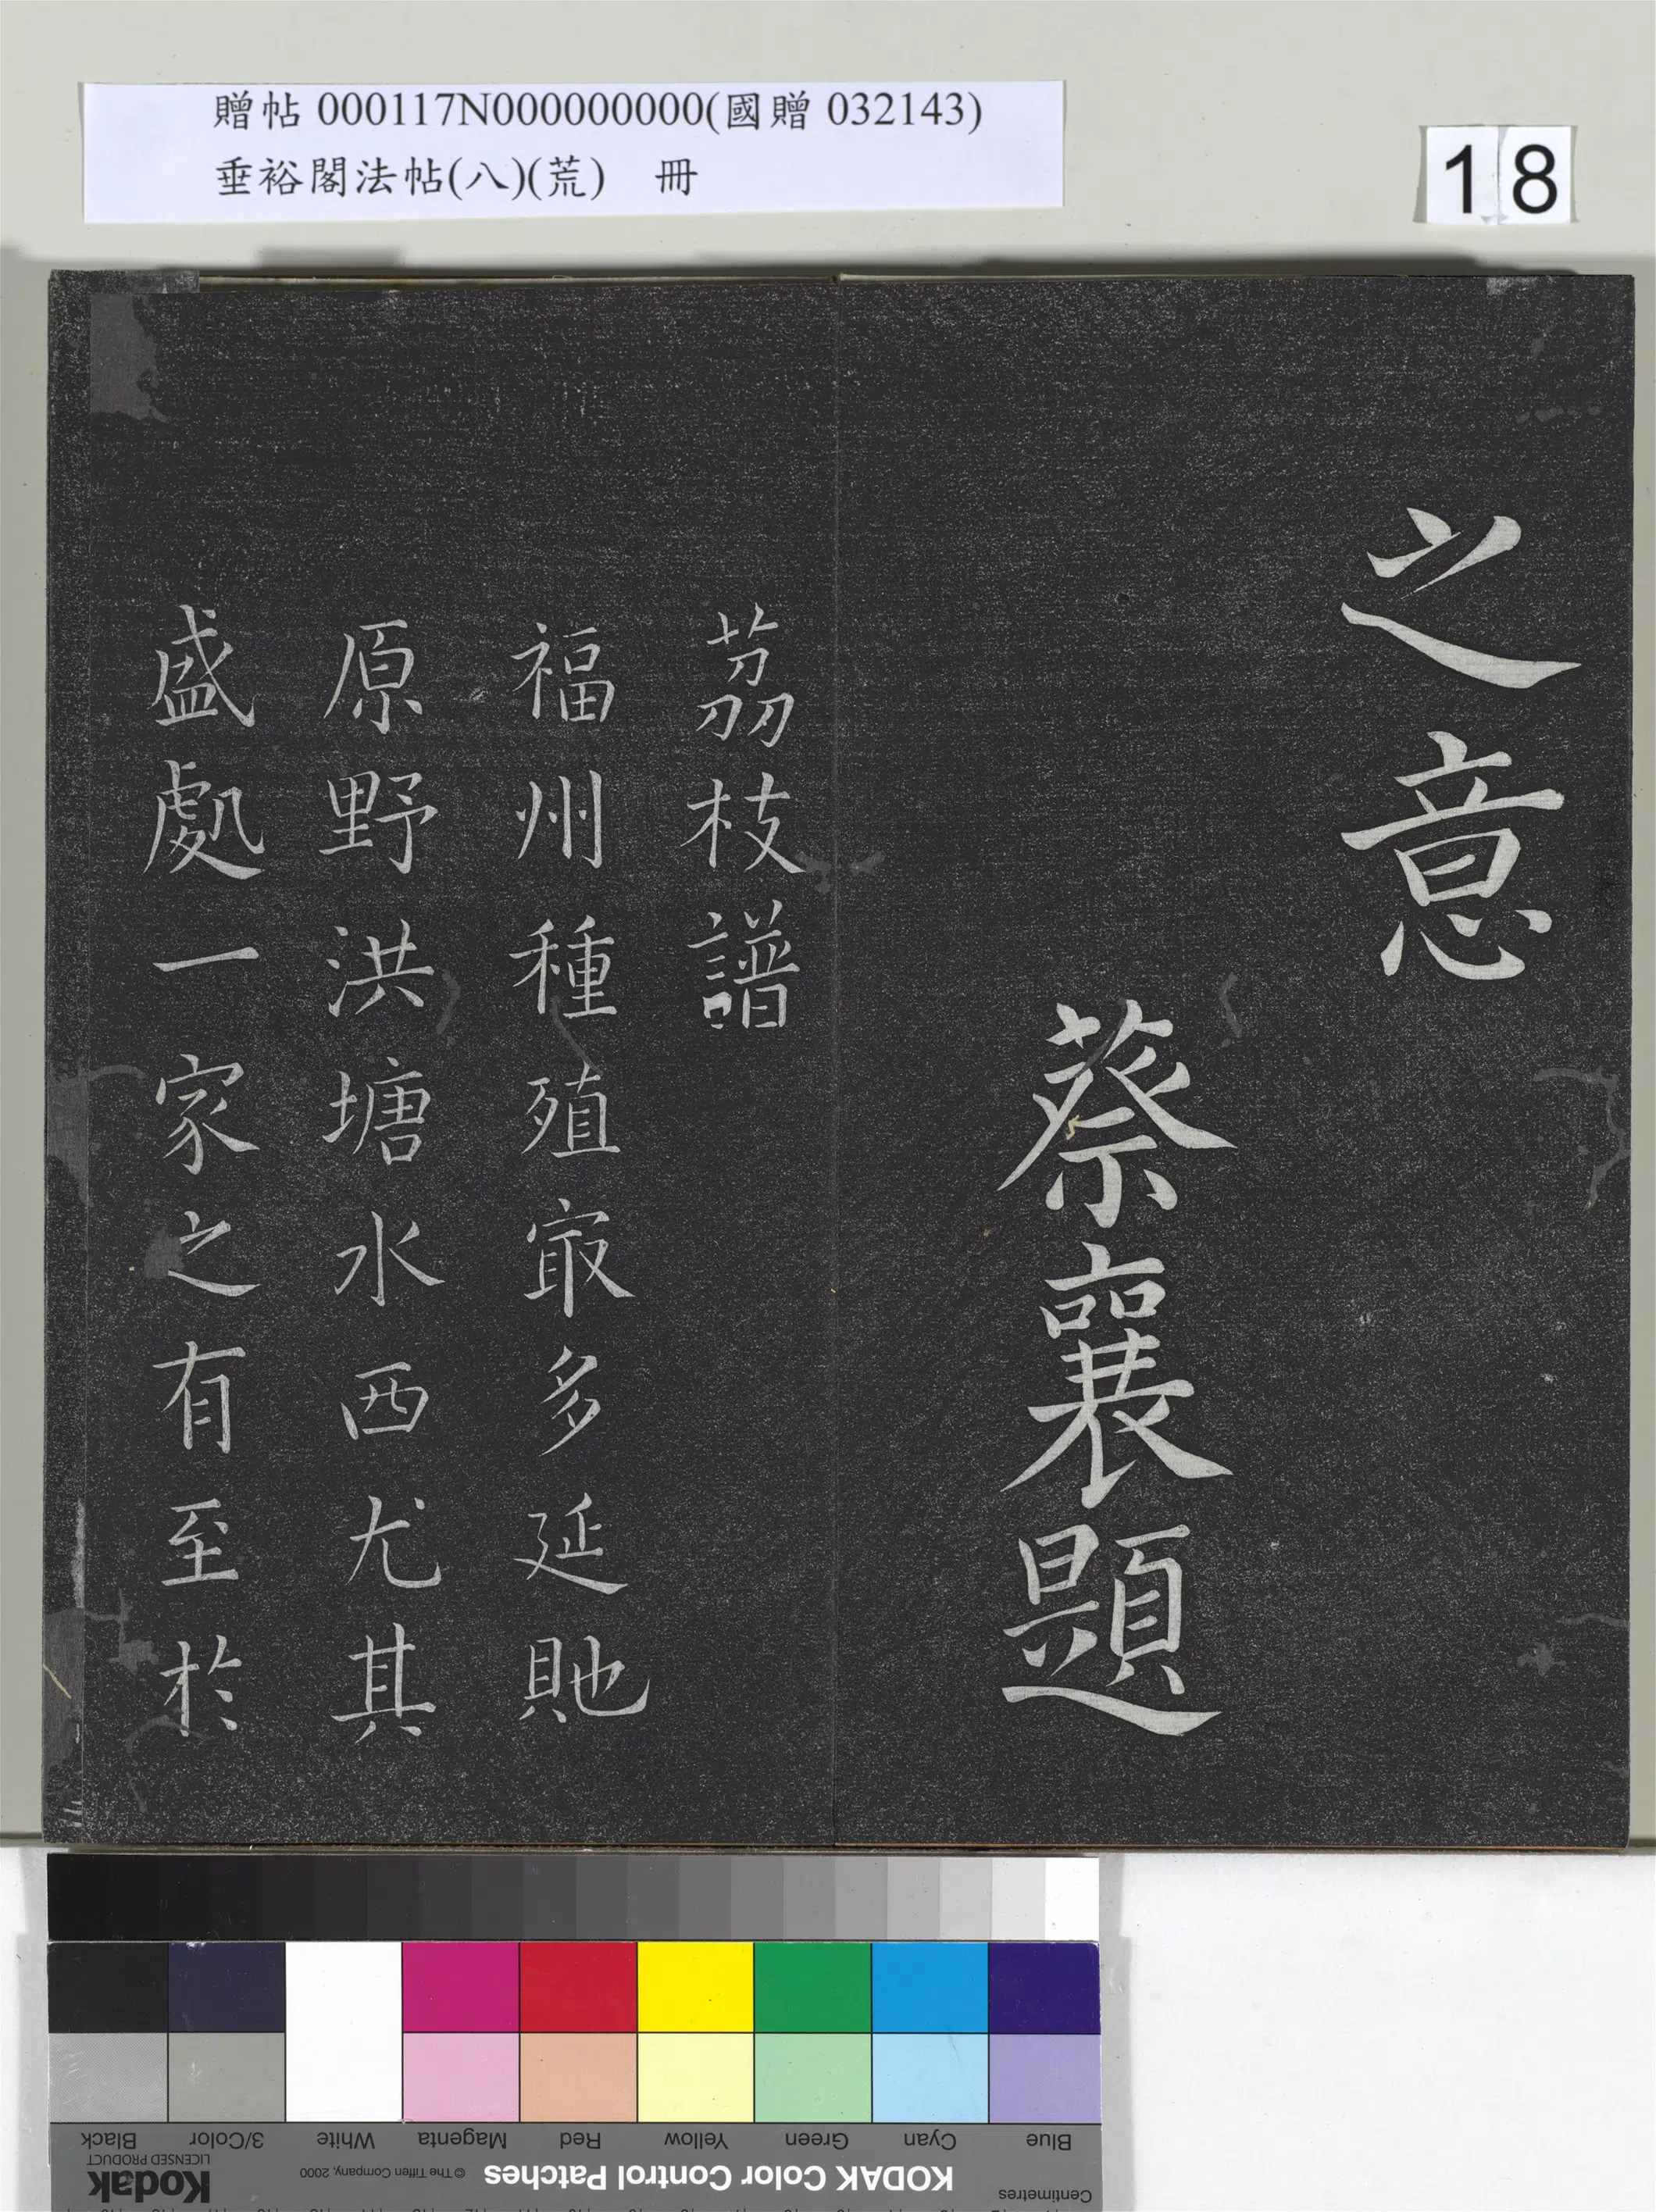 贈帖 000117N000000000(國贈 032143)
垂裕閣法帖(八)(荒) 冊
18
之意
蔡襄題
茘枝譜
福州種殖㝡多延貤
原野洪塘水西尤其
盛處一家之有至於
Blue
Cyan
Green
Yellow
Red
Magenta
White
3/Color
Black
Centimetres
KODAK Color Control Patches
© The Tiffen Company, 2000
Kodak
LICENSED PRODUCT